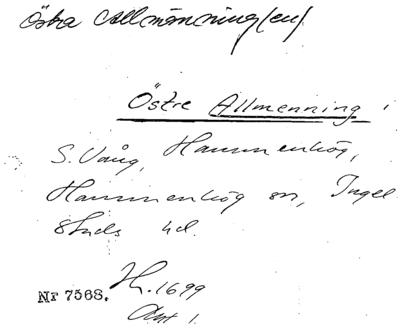 Östra Allmänning(en)
Östre Allmenning
S. Vång, Hammenhög,
Hammenhög sn, Ingel-
stads hd.
Jh. 1699
Akt 1.
NF 7568.